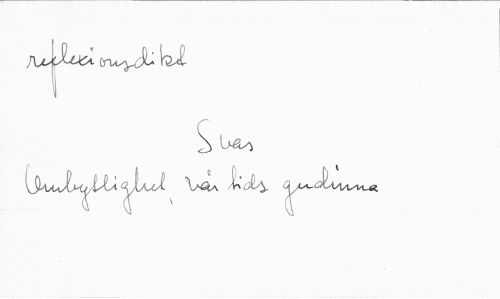 reflexionsdikt
Svas
Ombytlighet, vår tids gudinna